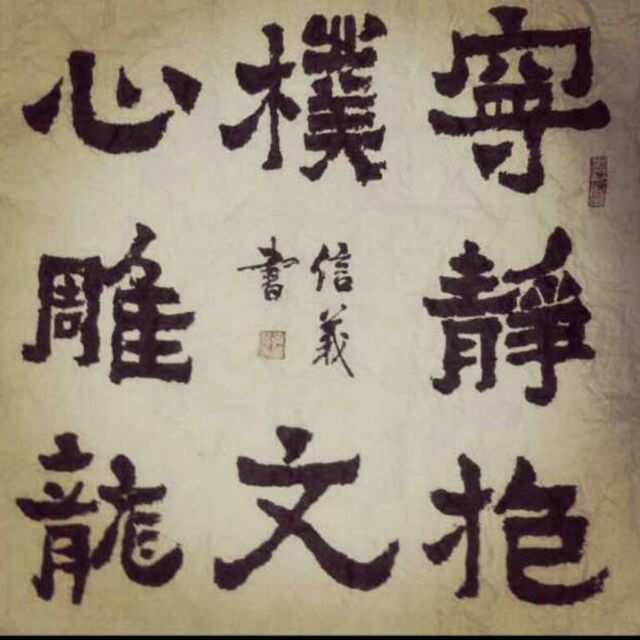 寧靜抱
樸文
心雕龍
信義
書